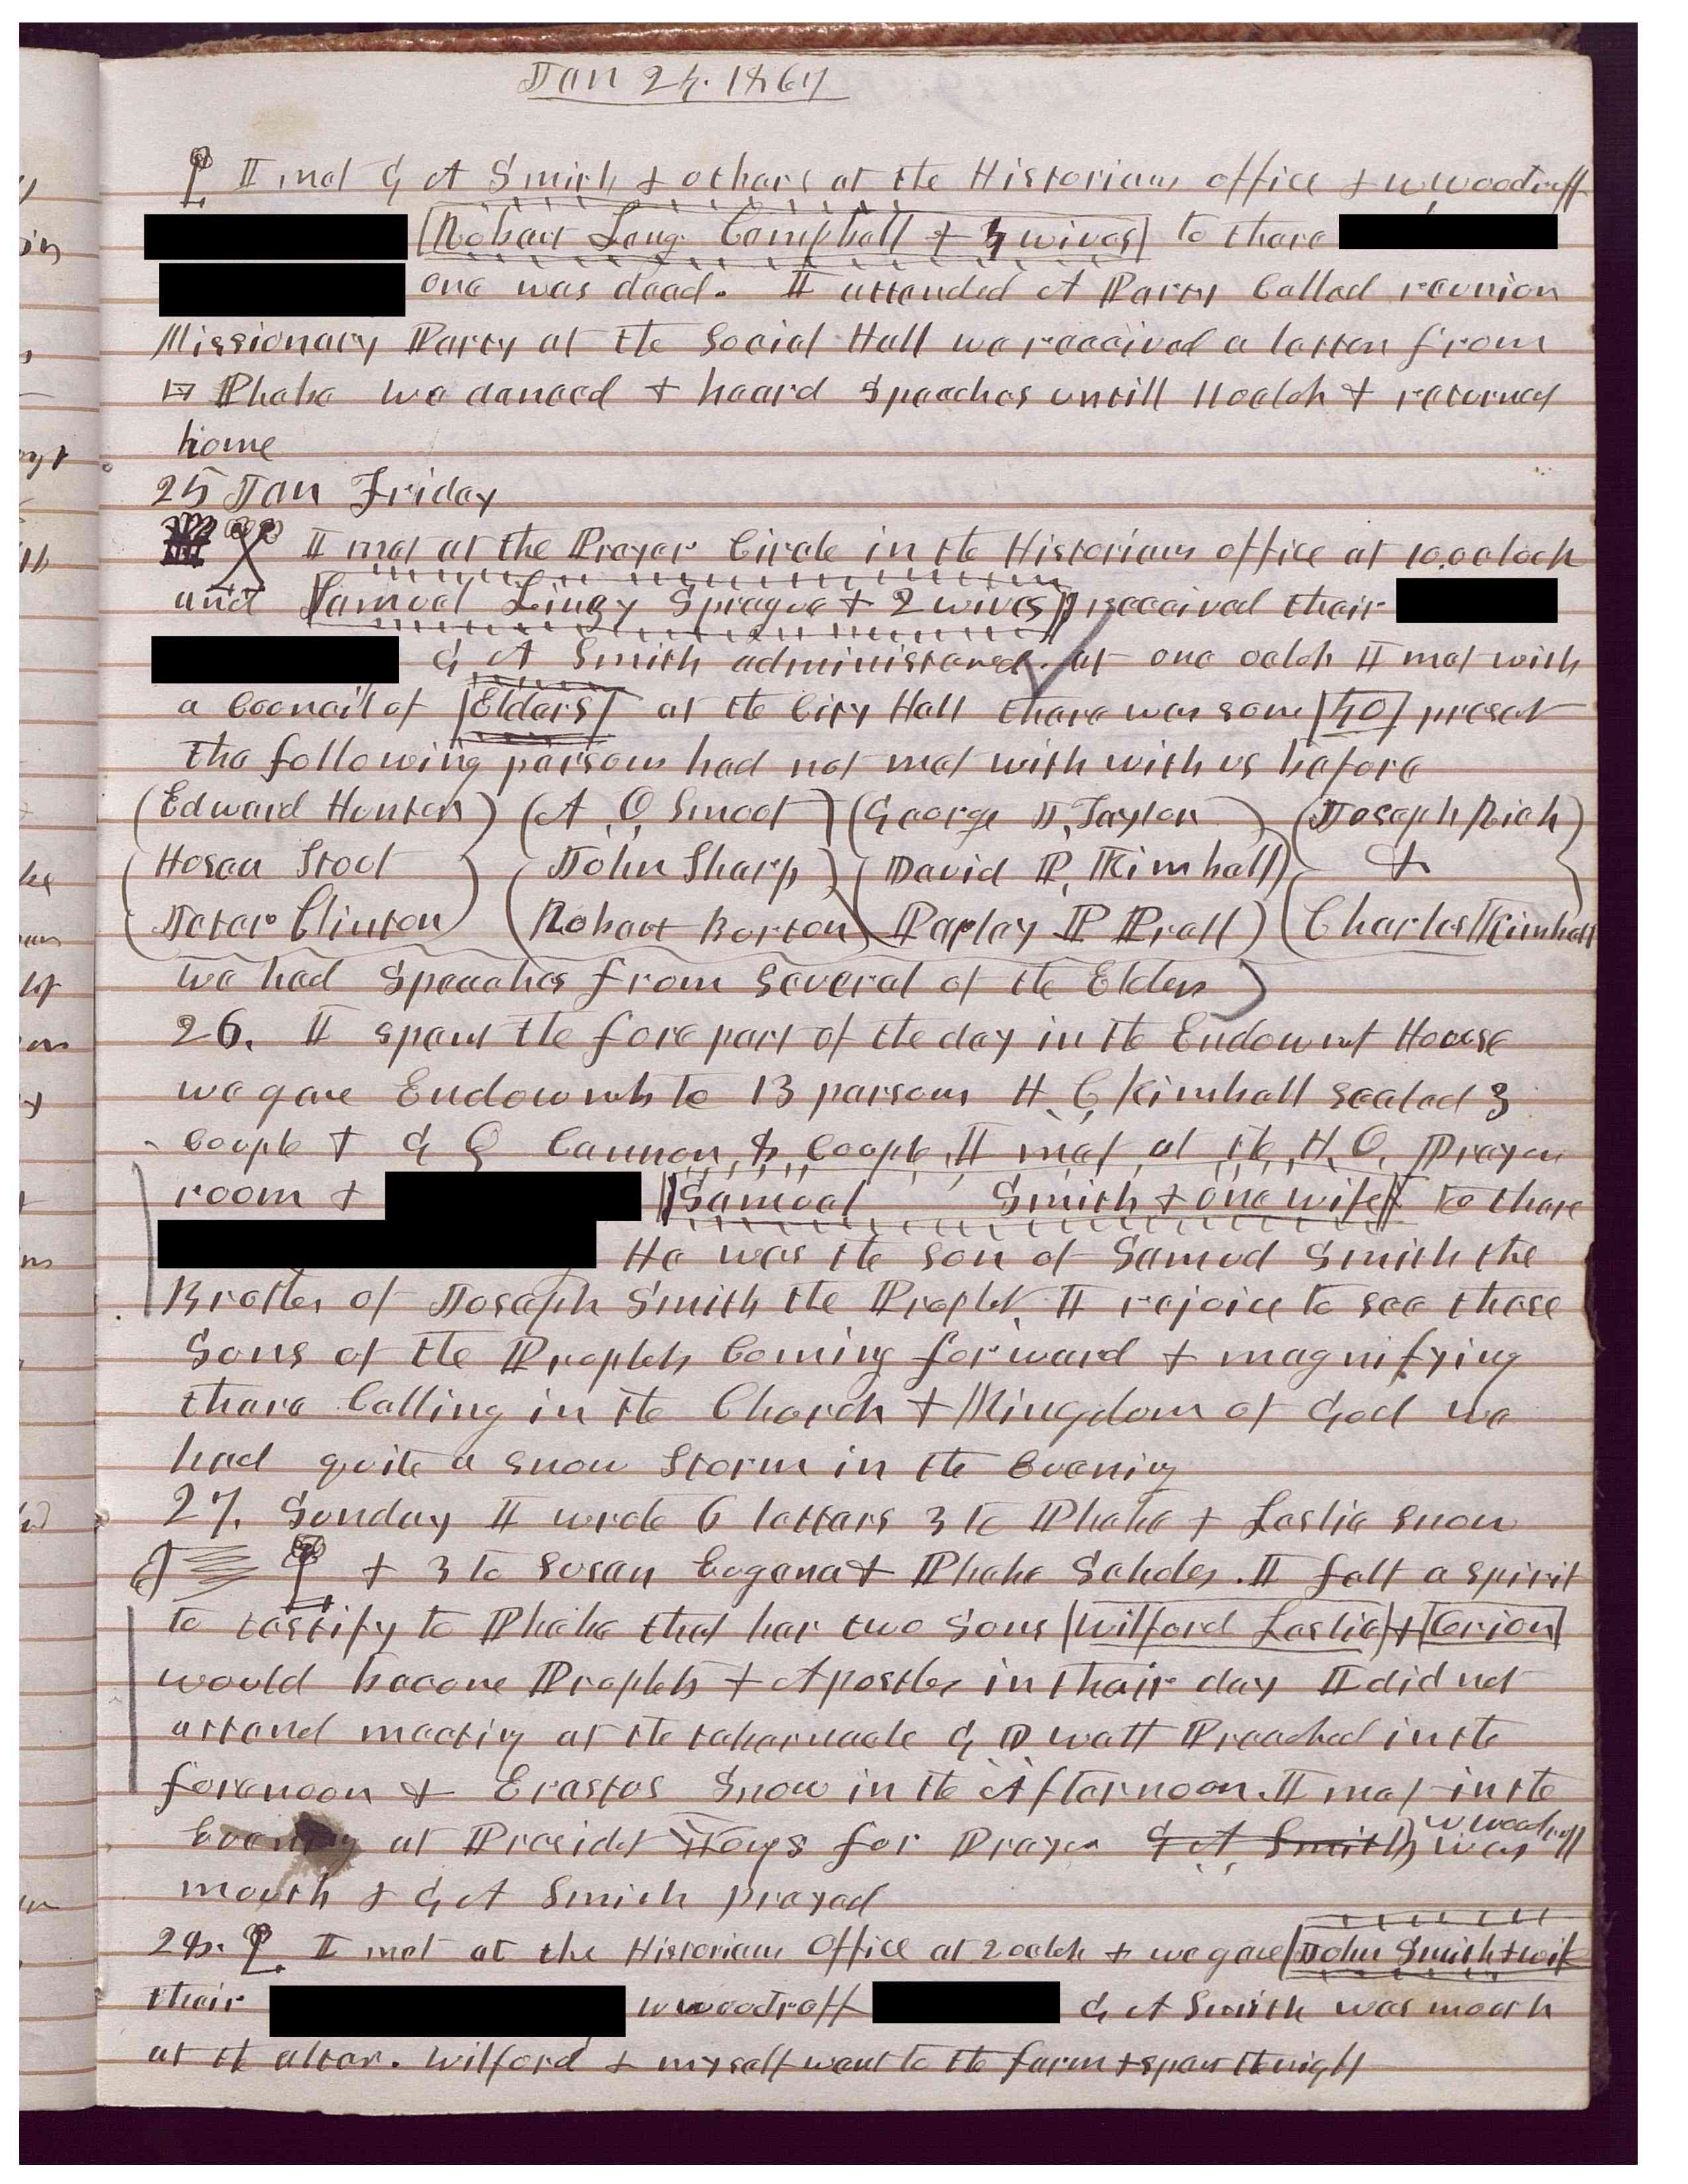 Jan 24. 1867
I met G A Smith & others at the Historians office & W Woodruff
Robert Lang Campbell & 3 wives to there
one was dead. I attended A Party Called reunion
Missionary Party at the Social Hall we received a letter from
Phebe we danced & heard Speeches untill 11 oclok & returned
home
25 Jan Friday
I met at the Prayer Circle in the Historians office at 10, oclock
and Samuel Linzy Sprague & 2 wives received their
G A Smith administered. at one oclok I met with
a Council of Elders at the City Hall there was some 40 present
the following persons had not met with with us before
Edward Hunter A O, Smoot George J, Taylor Joseph Rich
Hosea Stout John Sharp David P, Kimball &
Jeter Clinton Robert Burton Parley P Pratt Charles Kimball
we had Speeches from Several of the Elders
26. I spent the fore part of the day in the Endowmt House
we gave Endowmts to 13 persons H. C, Kimball sealed 3
Couple & G Q Cannon 8 Couple, I met at the H. O. Prayer
room & Samuel Smith & one wife to there
He was the son of Samuel Smith the
Brother of Joseph Smith the Prophet. I rejoice to see these
Sons of the Prophets Coming forward & magnifying
there Calling in the Church & Kingdom of God we
had quite a snow Storm in the Evening
27. Sunday I wrote 6 letters 3 to Phebe & Leslie Snow
& 3 to Susan Eugena & Phebe Scholes. I felt a spirit
to testify to Phebe that her two Sons Wilford Leslie & Orion
would become Prophets & Apostles in their day I did not
attend meeting at the tabernacle G D Watt Preached in the
forenoon & Erastus Snow in the Afternoon. I met in the
Evening at Presidet Youngs for Prayer G A Smith W Woodruff was
mouth & G A Smith prayed
28. I met at the Historians Office at 2 oclok & we gave John Smith & wife
their W Woodruff G A Smith was mouth
at the altar. Wilford & myself went to the farm & spent the night